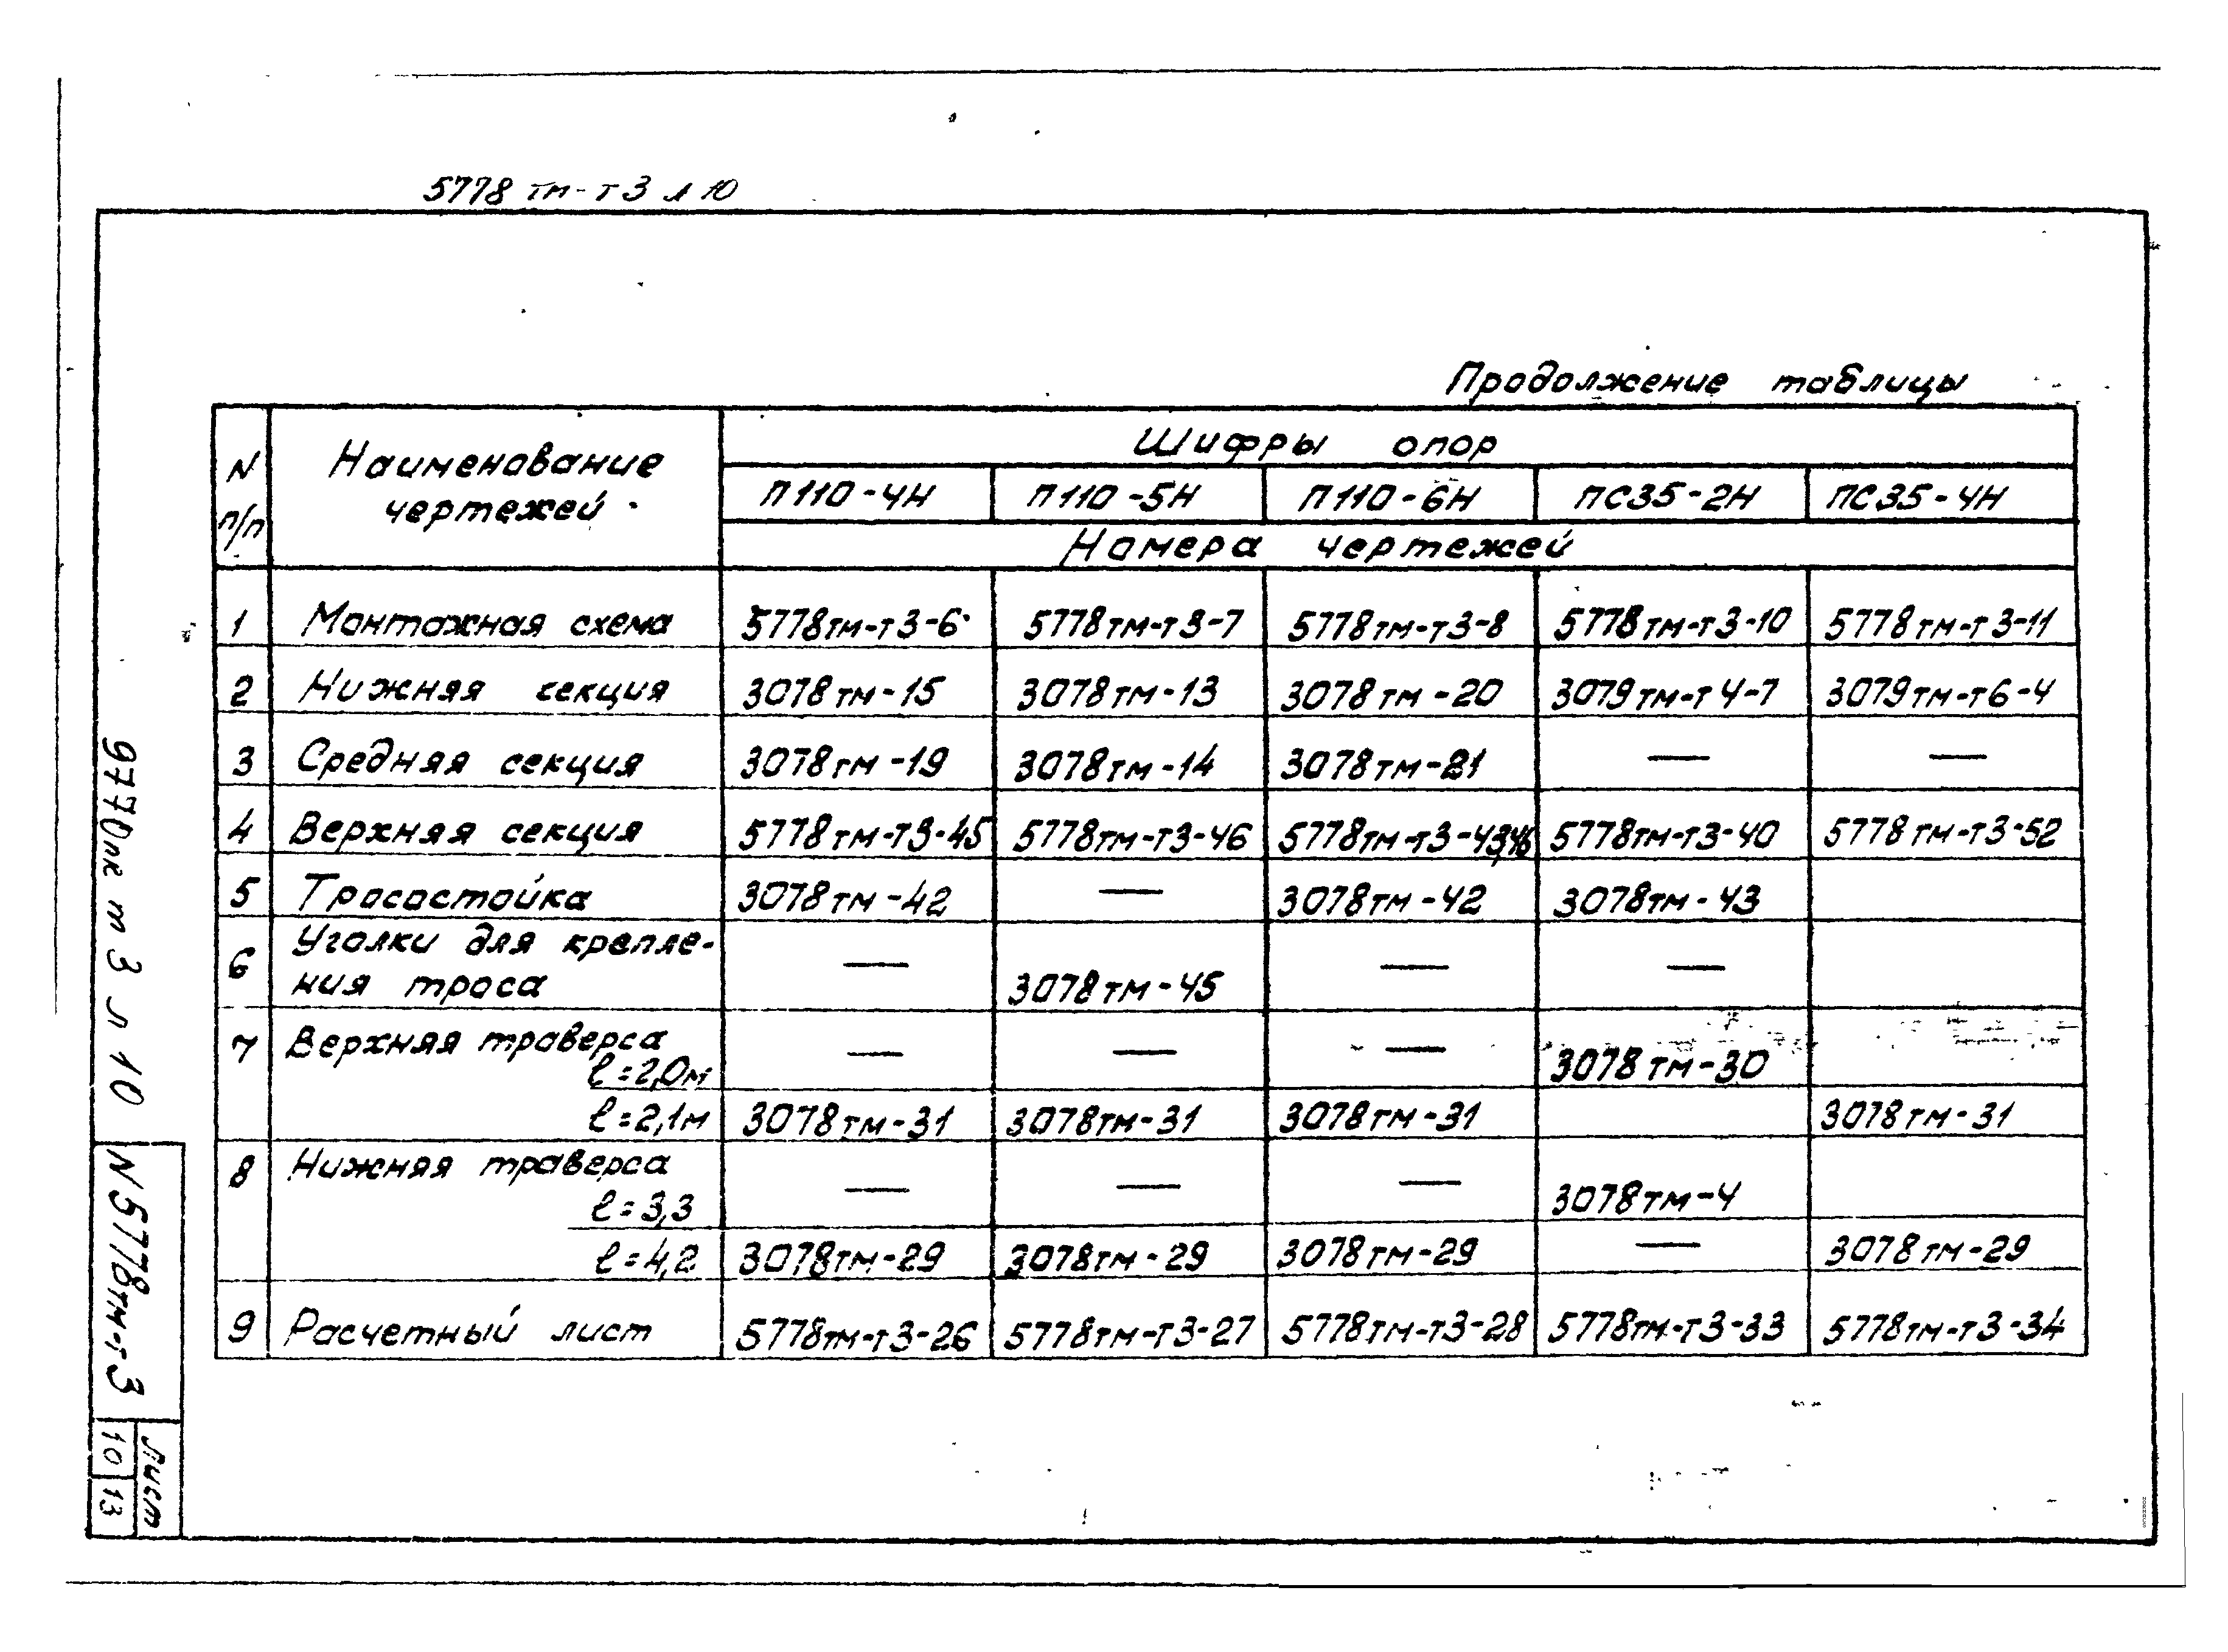 5778 тм-т3 л 10
Продолжение таблицы
N п/п Наименование чертежей Шифры опор
П110-4Н П110-5Н П110-6Н ПС35-2Н ПС35-4Н
Номера чертежей
1 Монтажная схема 5778тм-т3-6 5778тм-т3-7 5778тм-т3-8 5778тм-т3-10 5778тм-т3-11
2 Нижняя секция 3078тм-15 3078тм-13 3078тм-20 3079тм-т4-7 3079тм-т6-4
3 Средняя секция 3078тм-19 3078тм-14 3078тм-21 — —
4 Верхняя секция 5778тм-т3-45 5778тм-т3-46 5778тм-т3-43,46 5778тм-т3-40 5778тм-т3-52
5 Тросостойка 3078тм-42 — 3078тм-42 3078тм-43
6 Уголки для крепле-
ния троса — 3078тм-45 — —
7 Верхняя траверса
ℓ=2,0м — — — 3078тм-30
ℓ=2,1м 3078тм-31 3078тм-31 3078тм-31 3078тм-31
8 Нижняя траверса
ℓ=3,3 — — — 3078тм-4
ℓ=4,2 3078тм-29 3078тм-29 3078тм-29 — 3078тм-29
9 Расчетный лист 5778тм-т3-26 5778тм-т3-27 5778тм-т3-28 5778тм-т3-33 5778тм-т3-34
9770пк т 3 л 10
N5778тм-т-3
Лист
10 13